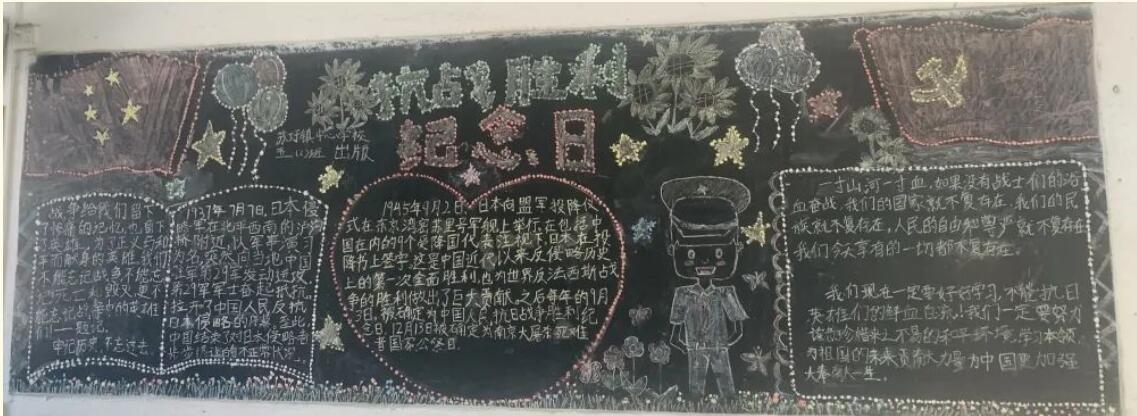 抗战胜利
纪念日
中心学校
出版
战争给我们留下
了惨痛的记忆，也留下
英雄，为正义与和
平而献身的英雄我们
不能忘记战争不能忘
记死亡和毁灭更不
能忘记战争中的英雄
们——题记。
牢记历史，不忘过去
1937年7月7日，日本侵
略军在北平西南的卢沟
桥附近，以军事演习
为名突然向当地中国
驻军第29军发动进攻
第29军军士奋起抵抗
拉开了中国人民反抗
日本侵略的序幕，至此
中国结束了对日本侵略者
步步退让的不正常状况
1945年9月2日，日本向盟军投降仪
式在东京湾密苏里号军舰上举行，在包括中
国在内的9个受降国代表注视下，日本在投
降书上签字，这是中国近代以来反侵略历史
上的第一次全面胜利，也为世界反法西斯战
争的胜利做出了巨大贡献，之后每年的9月
3日，被确定为中国人民抗日战争胜利纪
念日，12月13日被确定为南京大屠杀死难
者国家公祭日
一寸山河一寸血，如果没有战士们的浴
血奋战，我们的国家就不复存在，我们的民
族就不复存在，人民的自由和尊严就不复存在
我们今天享有的一切都不复存在。
我们现在一定要好好学习，不能抗日
英雄们的鲜血白流！我们一定要努力
珍惜来之不易的和平环境，学习本领，
为祖国的未来贡献力量为中国更加强
大